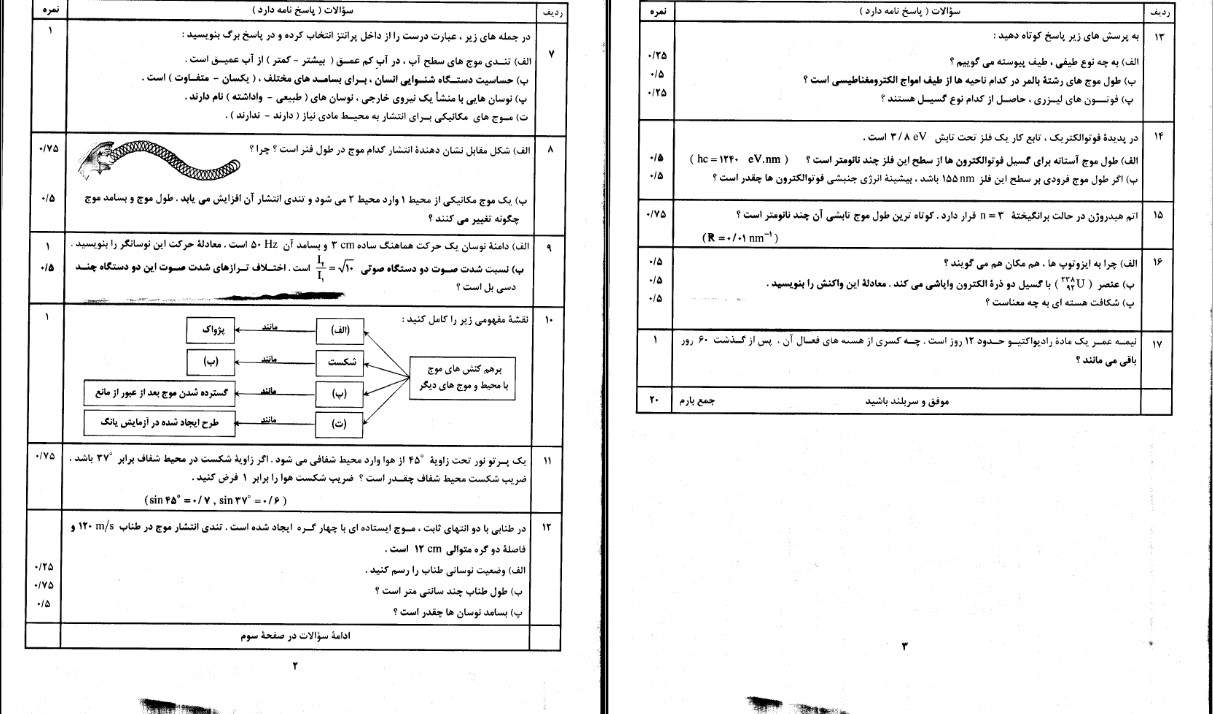 ردیف	سؤالات ( پاسخ نامه دارد )	نمره
۷	در جمله های زیر ، عبارت درست را از داخل پرانتز انتخاب کرده و در پاسخ برگ بنویسید :	۱
الف) تندی موج های سطح آب ، در آب کم عمق ( بیشتر - کمتر ) از آب عمیق است .
ب) حساسیت دستگاه شنوایی انسان ، برای بسامد های مختلف ، ( یکسان - متفاوت ) است .
پ) نوسان هایی با منشأ یک نیروی خارجی ، نوسان های ( طبیعی - واداشته ) نام دارند .
ت) موج های مکانیکی برای انتشار به محیط مادی نیاز ( دارند - ندارند ) .
۸	الف) شکل مقابل نشان دهندهٔ انتشار کدام موج در طول فنر است ؟ چرا ؟	۰/۷۵
ب) یک موج مکانیکی از محیط ۱ وارد محیط ۲ می شود و تندی انتشار آن افزایش می یابد . طول موج و بسامد موج	۰/۵
چگونه تغییر می کنند ؟
۹	الف) دامنهٔ نوسان یک حرکت هماهنگ ساده ۳ cm و بسامد آن ۵۰ Hz است . معادلهٔ حرکت این نوسانگر را بنویسید .	۱
ب) نسبت شدت صوت دو دستگاه صوتی I۲/I۱ = √۱۰ است . اختلاف ترازهای شدت صوت این دو دستگاه چند	۰/۵
دسی بل است ؟
۱۰	نقشهٔ مفهومی زیر را کامل کنید :	۱
برهم کنش های موج
با محیط و موج های دیگر
(الف)	مانند	پژواک
شکست	مانند	(ب)
(پ)	مانند	گسترده شدن موج بعد از عبور از مانع
(ت)	مانند	طرح ایجاد شده در آزمایش یانگ
۱۱	یک پرتو نور تحت زاویهٔ ۴۵° از هوا وارد محیط شفافی می شود . اگر زاویهٔ شکست در محیط شفاف برابر ۳۷° باشد ،	۰/۷۵
ضریب شکست محیط شفاف چقدر است ؟ ضریب شکست هوا را برابر ۱ فرض کنید .
(sin ۴۵° = ۰/۷ , sin ۳۷° = ۰/۶ )
۱۲	در طنابی با دو انتهای ثابت ، موج ایستاده ای با چهار گره ایجاد شده است . تندی انتشار موج در طناب ۱۲۰ m/s و
فاصلهٔ دو گره متوالی ۱۲ cm است .
الف) وضعیت نوسانی طناب را رسم کنید .	۰/۲۵
ب) طول طناب چند سانتی متر است ؟	۰/۷۵
پ) بسامد نوسان ها چقدر است ؟	۰/۵
ادامهٔ سؤالات در صفحهٔ سوم
۲
ردیف	سؤالات ( پاسخ نامه دارد )	نمره
۱۳	به پرسش های زیر پاسخ کوتاه دهید :
الف) به چه نوع طیفی ، طیف پیوسته می گوییم ؟	۰/۲۵
ب) طول موج های رشتهٔ بالمر در کدام ناحیه ها از طیف امواج الکترومغناطیسی است ؟	۰/۵
پ) فوتون های لیزری ، حاصل از کدام نوع گسیل هستند ؟	۰/۲۵
۱۴	در پدیدهٔ فوتوالکتریک ، تابع کار یک فلز تحت تابش ۳/۸ eV است .
الف) طول موج آستانه برای گسیل فوتوالکترون ها از سطح این فلز چند نانومتر است ؟ ( hc = ۱۲۴۰ eV.nm )	۰/۵
ب) اگر طول موج فرودی بر سطح این فلز ۱۵۵ nm باشد ، بیشینهٔ انرژی جنبشی فوتوالکترون ها چقدر است ؟	۰/۵
۱۵	اتم هیدروژن در حالت برانگیختهٔ n = ۳ قرار دارد . کوتاه ترین طول موج تابشی آن چند نانومتر است ؟	۰/۷۵
(R = ۰/۰۱ nm⁻¹)
۱۶	الف) چرا به ایزوتوپ ها ، هم مکان هم می گویند ؟	۰/۵
ب) عنصر ( ²³⁸₉₂U ) با گسیل دو ذرهٔ الکترون واپاشی می کند . معادلهٔ این واکنش را بنویسید .	۰/۵
پ) شکافت هسته ای به چه معناست ؟	۰/۵
۱۷	نیمه عمر یک مادهٔ رادیواکتیو حدود ۱۲ روز است . چه کسری از هسته های فعال آن ، پس از گذشت ۶۰ روز	۱
باقی می مانند ؟
موفق و سربلند باشید	جمع بارم	۲۰
۳